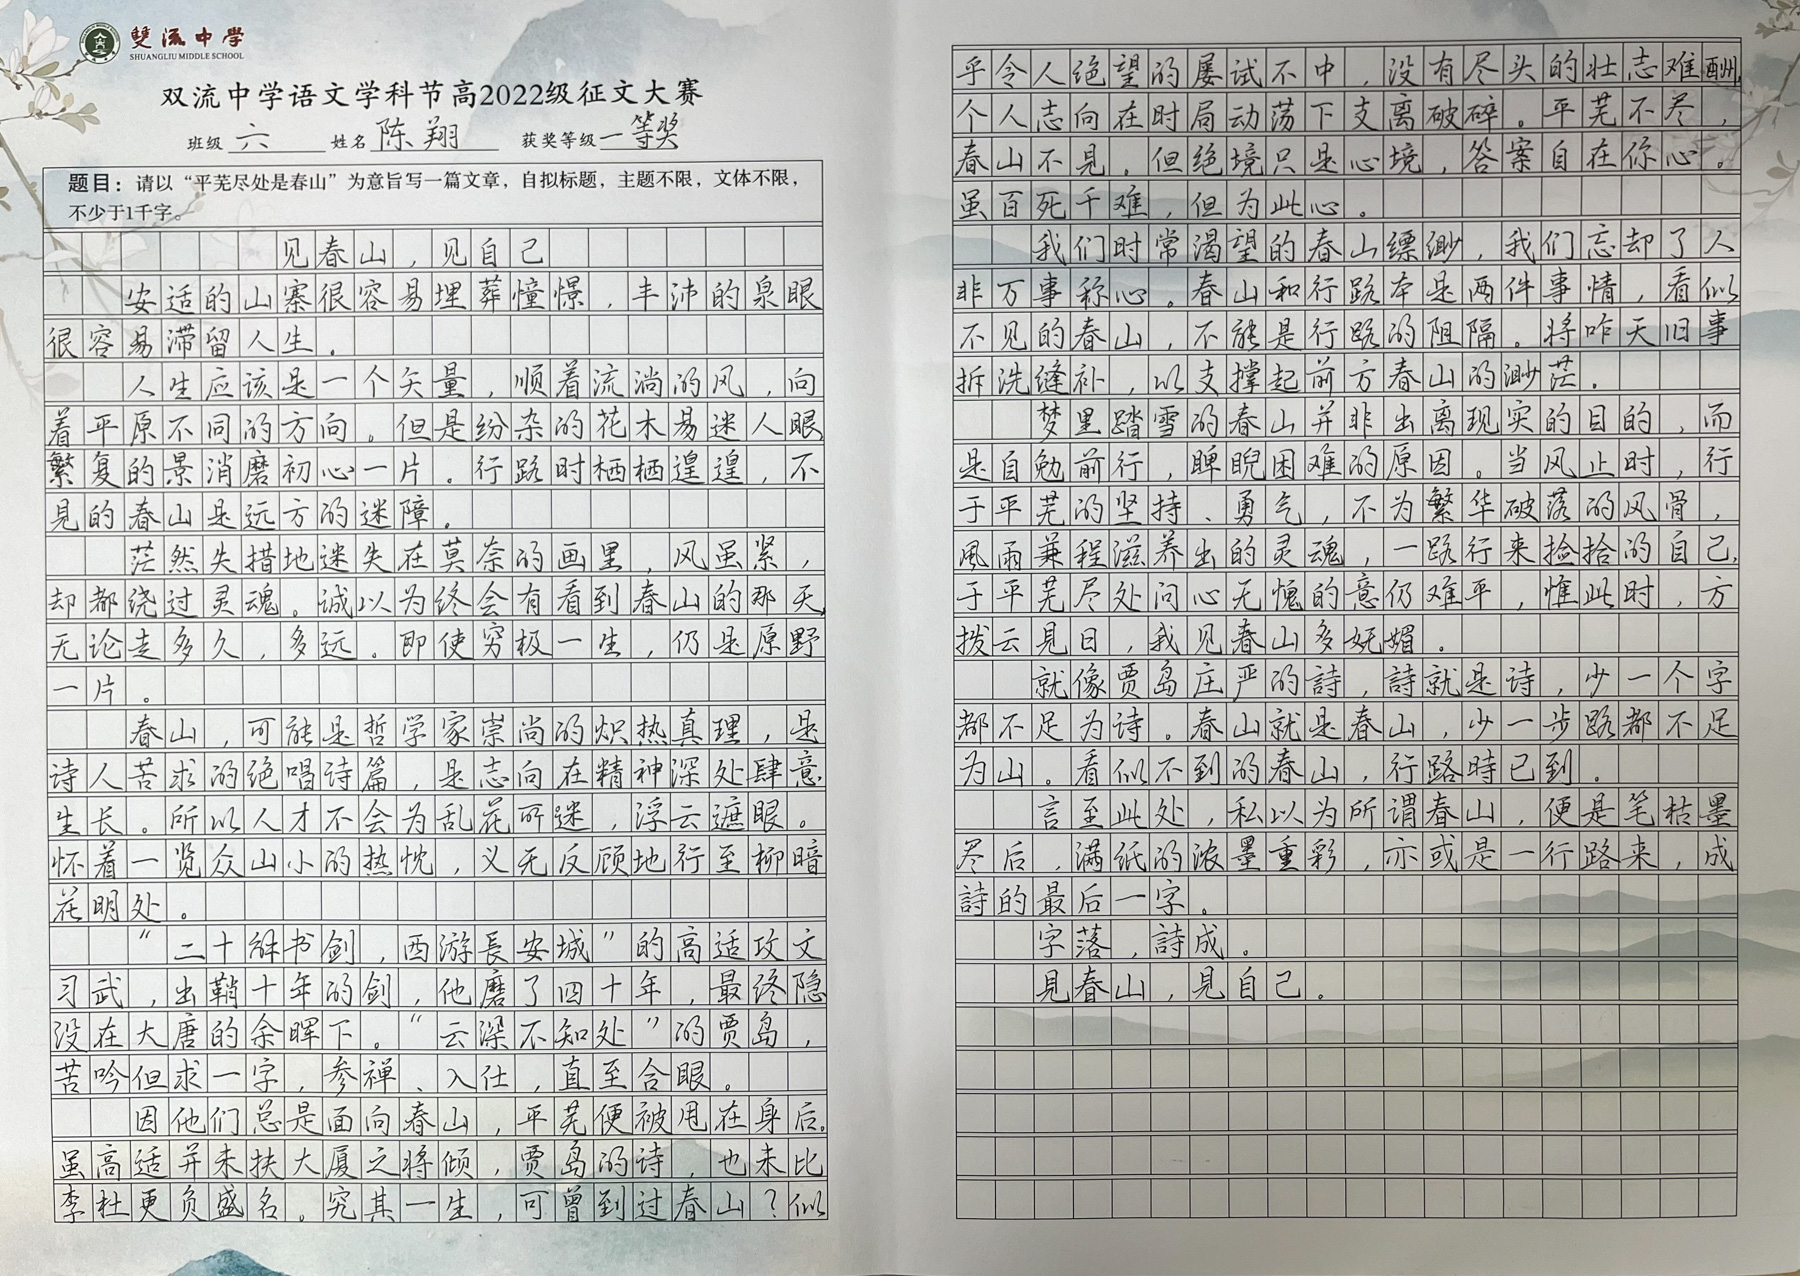 雙流中学
SHUANGLIU MIDDLE SCHOOL
双流中学语文学科节高2022级征文大赛
班级 六 姓名 陈翔 获奖等级 一等奖
题目：请以“平芜尽处是春山”为意旨写一篇文章，自拟标题，主题不限，文体不限，
不少于1千字。
见春山，见自己
安适的山寨很容易埋葬憧憬，丰沛的泉眼
很容易滞留人生。
人生应该是一个矢量，顺着流淌的风，向
着平原不同的方向。但是纷杂的花木易迷人眼，
繁复的景消磨初心一片。行路时栖栖遑遑，不
見的春山是远方的迷障。
茫然失措地迷失在莫奈的画里，风虽紧，
却都绕过灵魂。诚以为终会有看到春山的那天，
无论走多久，多远。即使穷极一生，仍是原野
一片。
春山，可能是哲学家崇尚的炽热真理，是
诗人苦求的绝唱诗篇，是志向在精神深处肆意
生长。所以人才不会为乱花所迷，浮云遮眼。
怀着一览众山小的热忱，义无反顾地行至柳暗
花明处。
“二十解书剑，西游長安城”的高适攻文
习武，出鞘十年的剑，他磨了四十年，最终隐
没在大唐的余晖下。“云深不知处”的贾岛，
苦吟但求一字，参禅、入仕，直至合眼。
因他们总是面向春山，平芜便被甩在身后。
虽高适并未扶大厦之将倾，贾岛的诗，也未比
李杜更负盛名。究其一生，可曾到过春山？似
乎令人绝望的屡试不中，没有尽头的壮志难酬，
个人志向在时局动荡下支离破碎。平芜不尽，
春山不見。但绝境只是心境，答案自在你心。
虽百死千难，但为此心。
我们时常渴望的春山缥缈，我们忘却了人
非万事称心。春山和行路本是两件事情，看似
不见的春山，不能是行路的阻隔。将昨天旧事
拆洗缝补，以支撑起前方春山的渺茫。
梦里踏雪的春山并非出离现实的目的，而
是自勉前行，睥睨困难的原因。当风止时，行
于平芜的坚持、勇气，不为繁华破落的风骨，
風雨兼程滋养出的灵魂，一路行来捡拾的自己，
于平芜尽处问心无愧的意仍难平，惟此时，方
拨云見日，我见春山多妩媚。
就像贾岛庄严的詩，詩就是诗，少一个字
都不足为诗。春山就是春山，少一步路都不足
为山。看似不到的春山，行路時已到。
言至此处，私以为所谓春山，便是笔枯墨
尽后，满纸的浓墨重彩，亦或是一行路来，成
詩的最后一字。
字落，詩成。
見春山，見自己。